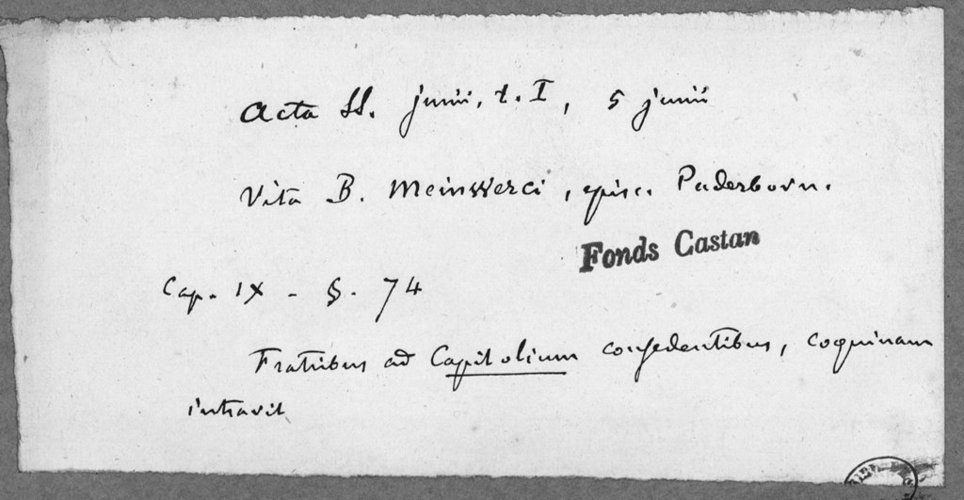 Acta SS. junii, t. I, 5 junii
Vita B. Meinwerci, episc. Paderborn.
Fonds Castan
Cap. IX - §. 74
Fratribus ad Capitolium consedentibus, coquinam
intravit